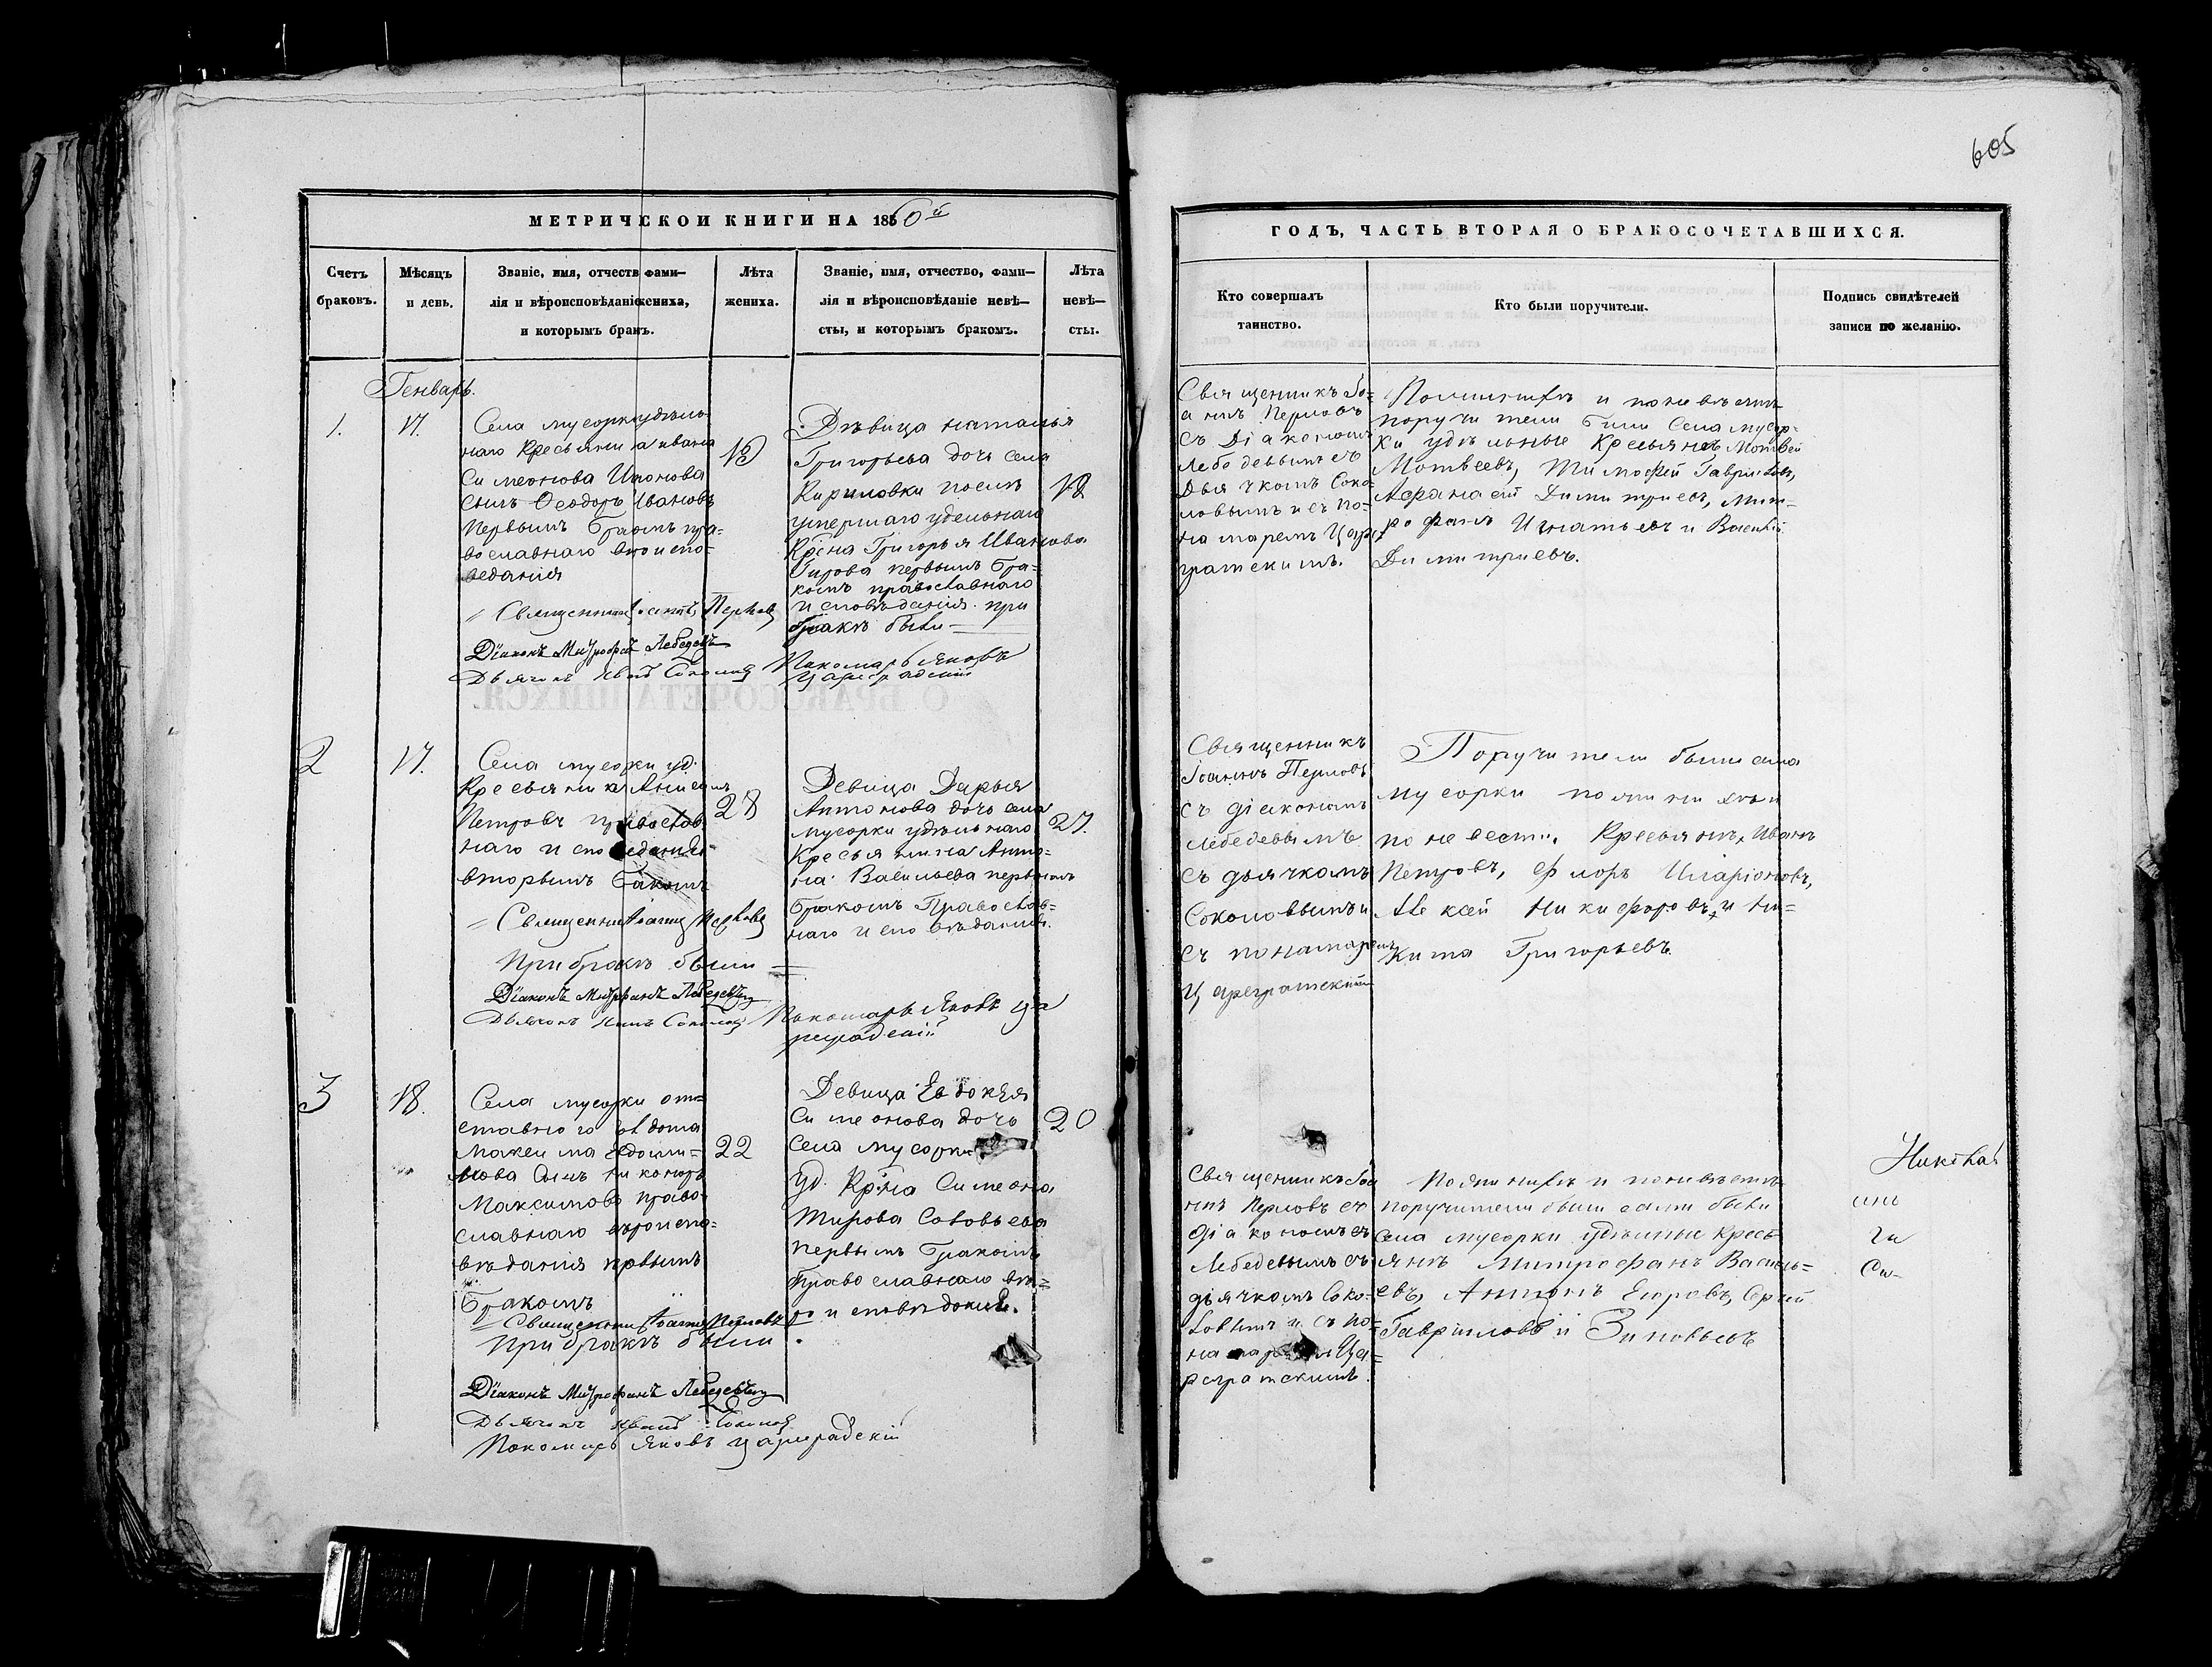 605
МЕТРИЧЕСКОИ КНИГИ НА 1860й
ГОДЪ, ЧАСТЬ ВТОРАЯ О БРАКОСОЧЕТАВШИХСЯ.
Счетъ
браковъ.
Мѣсяцъ
и день.
Званіе, имя, отчеств фами—
лія и вѣроисповѣданіе жениха,
и которымъ бракъ.
Лѣта
жениха.
Званіе, имя, отчество, фами—
лія и вѣроисповѣданіе невѣ—
сты, и которымъ бракомъ.
Лѣта
невѣ—
сты.
Кто совершалъ
таинство.
Кто были поручители.
Подпись свидѣтелей
записи по желанію.
Генварь.
1.
17.
Села мусорки удѣль
наго Кресьянина ивана
Симеонова
сынъ Ѳеодоръ Ивановъ
первымъ бракомъ пра-
вославнаго вероиспо-
ведания
Священникъ Іоаннъ Перловъ
Діаконъ Митрофанъ Лебедевъ
Дьячокъ Иванъ Соколовъ
Дѣвица наталья
Григорьева дочь села
Кириловки послѣ
умершаго удельнаго
Крѣна Григорья Иванова
первымъ бра-
комъ православнаго
исповѣдания. при
бракѣ были
Пономарь Яковъ
Цареградскій
18
Священникъ Іо-
аннъ Перловъ
съ Діакономъ
Лебедевымъ съ
Дьячкомъ Соко-
ловымъ и съ по-
намаремъ Царе
гратскимъ.
По женихѣ и по невѣсте
поручители были Села мусор-
ки удѣльные Кресьянѣ Мотвей
Мотвеевъ, Тимофей Гавриловъ,
Афанасий Димитриевъ, Мит-
рофанъ Игнатьевъ и Василій
Димитриевъ.
2
17.
Села мусорки уд.
Кресьянинъ
Петровъ православ
наго исповедания
вторымъ бракомъ
Священникъ Іоаннъ Перловъ
При бракѣ были
Діаконъ Митрофанъ Лебедевъ
Дьячокъ Иванъ Соколовъ
28
Девица Дарья
Антонова дочь села
мусорки удѣльнаго
Кресьянина Анто-
на Васильева первымъ
бракомъ Православ-
наго исповѣдания.
Пономарь Яковъ Ца
реградскій
27.
Священникъ
Іоаннъ Перловъ
съ діакономъ
Лебедевымъ
съ дьячкомъ
Соколовымъ и
съ понамаремъ
Цареградскимъ
Поручители были села
мусорки по женихѣ и
по невести. Кресьянѣ, Иванъ
Петровъ, Флоръ Иларіоновъ,
Алексей Никифоровъ, и Ни-
кита Григорьевъ.
3
18.
Села мусорки от-
ставного солдата
Максима
сынъ Никоноръ
Максимовъ право-
славнаго вероиспо-
вѣдания первымъ
бракомъ
Священникъ Іоаннъ Перловъ
При бракѣ были
Діаконъ Митрофанъ Лебедевъ
Дьячокъ Иванъ Соколовъ
Пономарь Яковъ Цареградскій
22
Девица Евдокѣя
Симеонова дочь
Села мусорки
уд. Крѣна Симеона
Соловьева
первымъ бракомъ
православнаго вѣ-
роисповѣдания.
20
Священникъ Іоа
ннъ Перловъ съ
діакономъ съ
Лебедевымъ съ
дьячкомъ Соко-
ловымъ и съ по-
Ца-
регратскимъ.
По женихѣ и по невѣсте
поручители были сами были
Села мусорки удѣльные кресь
янѣ Митрофанъ Василь-
евъ, Антонъ Егоровъ, Сергей
Гавриловъ и Зиновьевъ